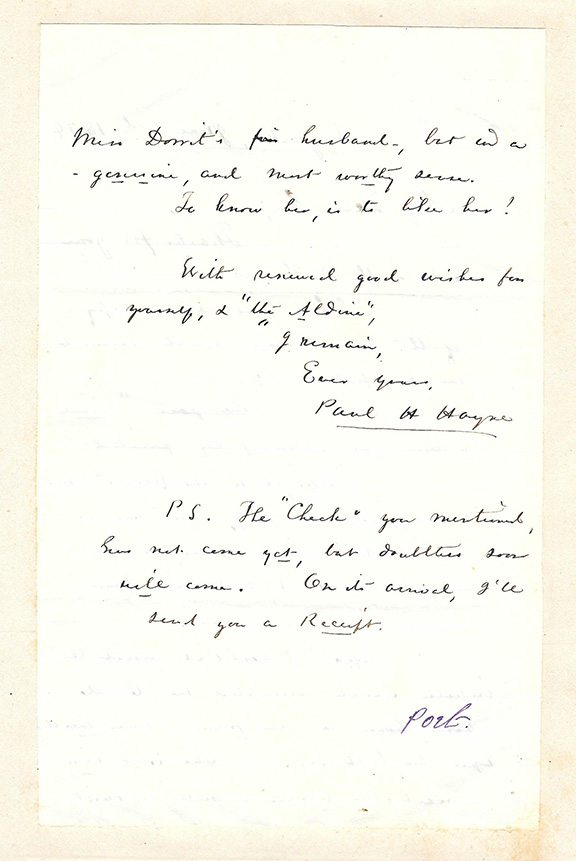 Miss Dorrit's husband, but in a
genuine, and most worthy sense.
To know her, is to like her!
With renewed good wishes for
yourself, & "the Aldine",
I remain,
Ever yours,
Paul H Hayne
PS. The "Check" you mentioned,
has not come yet, but doubtless soon
will come. On its arrival, I'll
send you a Receipt.
Poet.